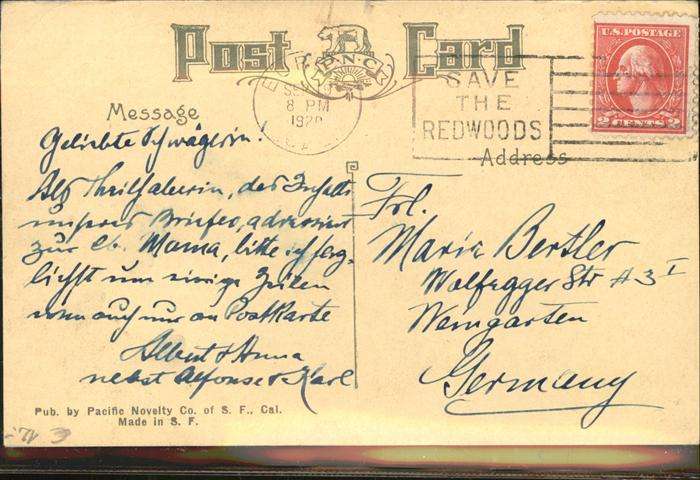 Post Card
P.N.C.
SEP
8 PM
1920
SAVE
THE
REDWOODS
U.S. POSTAGE
2 CENTS 2
Message
Address
Geliebte Schwägerin!
Als Theilhaberin, des Inhalts
unseres Briefes, adressiert
zur lb. Mama, bitte ich herz-
lichst um einige Zeilen
wenn auch nur an Postkarte
Albert & Anna
nebst Alfonse & Karl
Frl.
Marie Bertler
Wolfegger Str # 3 I
Weingarten
Germany
Pub. by Pacific Novelty Co. of S. F., Cal.
Made in S. F.